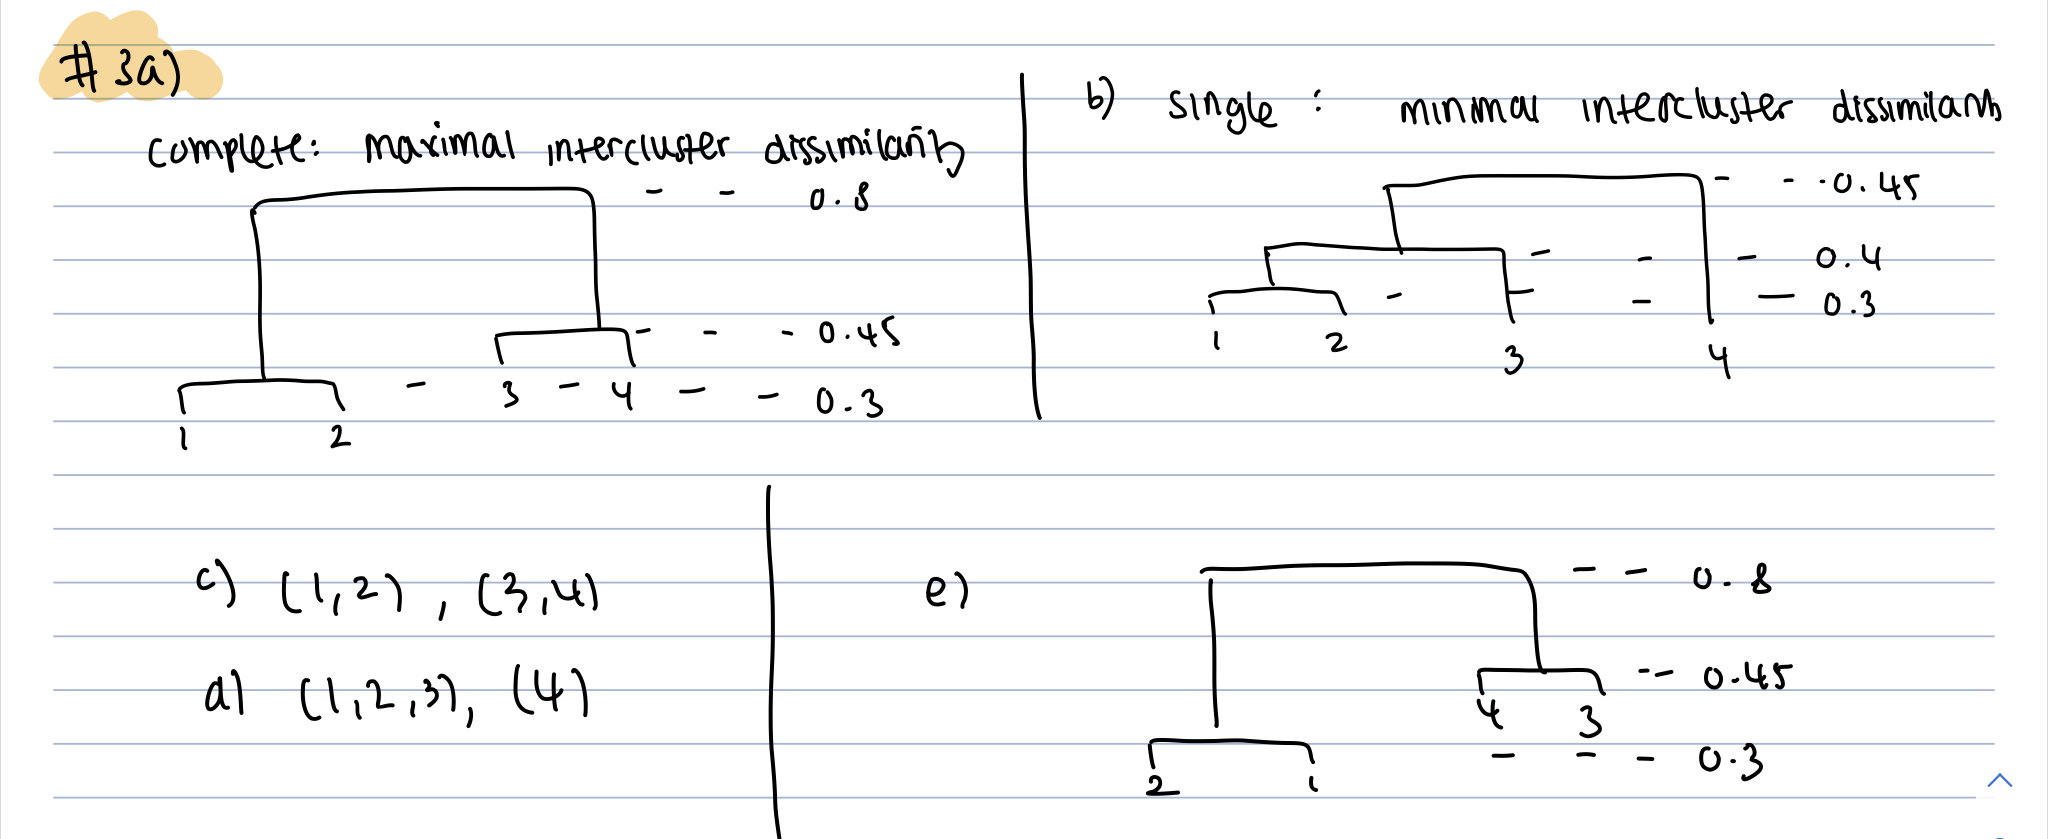 #3a)
complete: maximal intercluster dissimilarity
- - 0.8
- - - 0.45
1 2 - 3 - 4 - - 0.3
b) single : minimal intercluster dissimilarity
- - - 0.45
- - - 0.4
- - - - 0.3
1 2 3 4
c) (1,2) , (3,4)
d) (1,2,3), (4)
e)
- - 0.8
-- 0.45
4 3
- - - 0.3
2 1